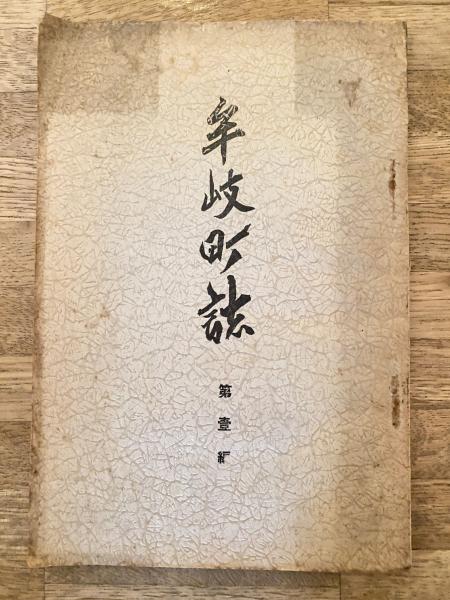 牟岐町誌
第壹編